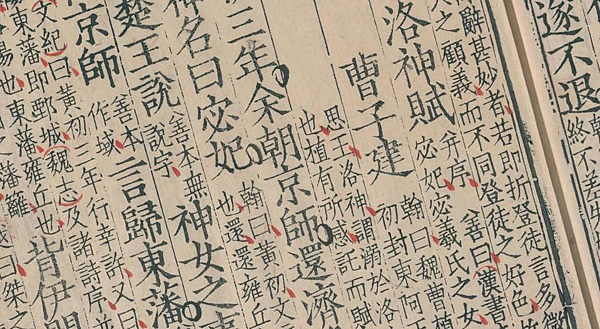 遂不退
終不
辭甚妙者若即折登徒言多微
之顧義而不同登徒之好色
洛神賦
并序善曰漢書
宓妃宓羲氏之女
曹子建
翰曰魏曹植
初封東阿王
思王洛神謂溺於洛
也植有所感託而賦
三年余朝京師還濟
神名曰宓妃
翰曰黃初文
也還還雍丘
楚王說
善本無
說字
神女之事
京師
善本
作域
言歸東藩
文紀曰黃初三年行幸許又曰
東藩即鄄城魏志及諸詩序
陽也東藩雍丘也
背伊